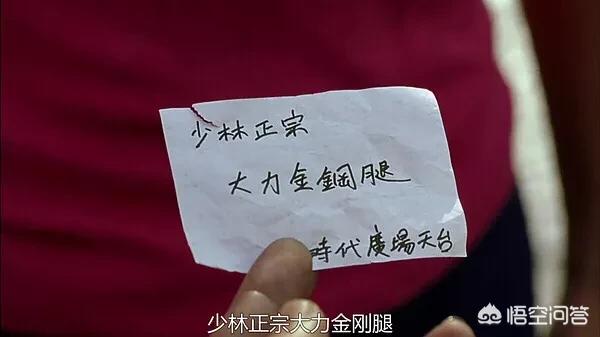 少林正宗
大力金鋼腿
時代廣場天台
少林正宗大力金刚腿
悟空问答